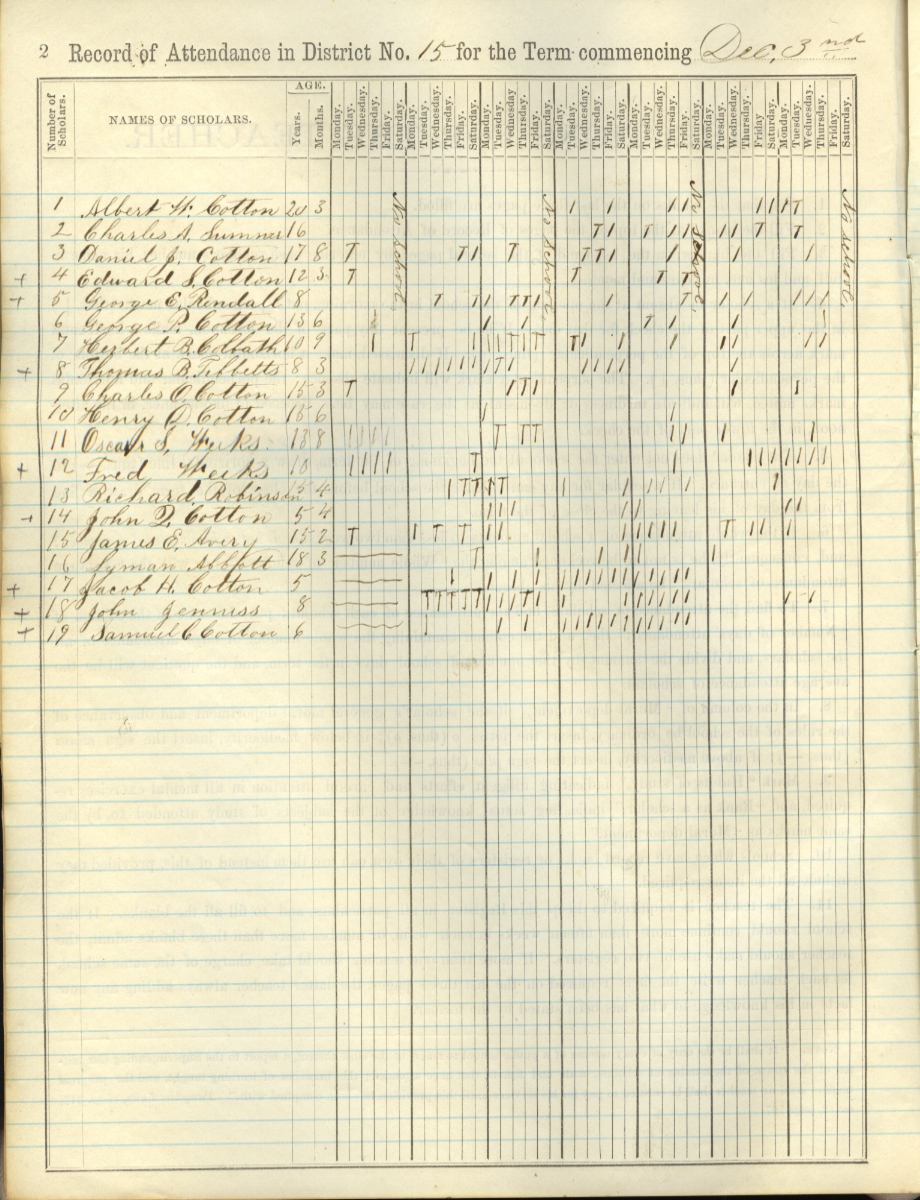 2 Record of Attendance in District No. 15 for the Term commencing Dec. 3nd
Number of Scholars.
NAMES OF SCHOLARS.
AGE.
Years. Months.
Monday. Tuesday. Wednesday. Thursday. Friday. Saturday. Monday. Tuesday. Wednesday. Thursday. Friday. Saturday. Monday. Tuesday. Wednesday Thursday. Friday. Saturday. Monday. Tuesday. Wednesday. Thursday. Friday. Saturday. Monday. Tuesday. Wednesday. Thursday. Friday. Saturday. Monday. Tuesday. Wednesday. Thursday. Friday Saturday. Monday. Tuesday. Wednesday. Thursday. Friday. Saturday.
No School.
No School.
No School.
No School.
1 Albert W. Cotton 20 3
2 Charles A. Sumner 16
3 Daniel J. Cotton 17 8
+ 4 Edward S. Cotton 12 3
+ 5 George E. Rendall 8
6 George P. Cotton 13 6
7 Herbert B. Colbath 10 9
+ 8 Thomas B. Tibbetts 8 3
9 Charles O. Cotton 15 3
10 Henry O. Cotton 15 6
11 Oscar S. Weeks 13 8
+ 12 Fred Weeks 10
13 Richard Robinson 4
+ 14 John Q. Cotton 5 4
15 James E. Avery 15 2
16 Lyman Abbott 18 3
+ 17 Jacob H. Cotton 5
+ 18 John Jenniss 8
+ 19 Samuel C Cotton 6